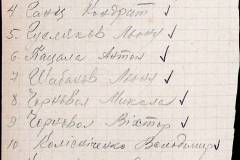 4 Ганц Кондрат ✓
5 Гусляков Леонід ✓
6 Пацала Антон ✓
7 Шабанов Леонід ✓
8 Чорновол Микола ✓
9 Чорновол Віктор ✓
10 Колісніченко Володимир ✓